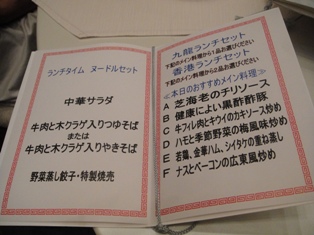 ランチタイム ヌードルセット
中華サラダ
牛肉と木クラゲ入りつゆそば
または
牛肉と木クラゲ入りやきそば
野菜蒸し餃子・特製焼売
九龍ランチセット
下記のメイン料理から1品お選びください
香港ランチセット
下記のメイン料理から2品お選びください
≪本日のおすすめメイン料理≫
A 芝海老のチリソース
B 健康によい黒酢酢豚
C 牛フィレ肉とキウイのカキソース炒め
D ハモと季節野菜の梅風味炒め
E 若鶏、金華ハム、シイタケの重ね蒸し
F ナスとベーコンの広東風炒め